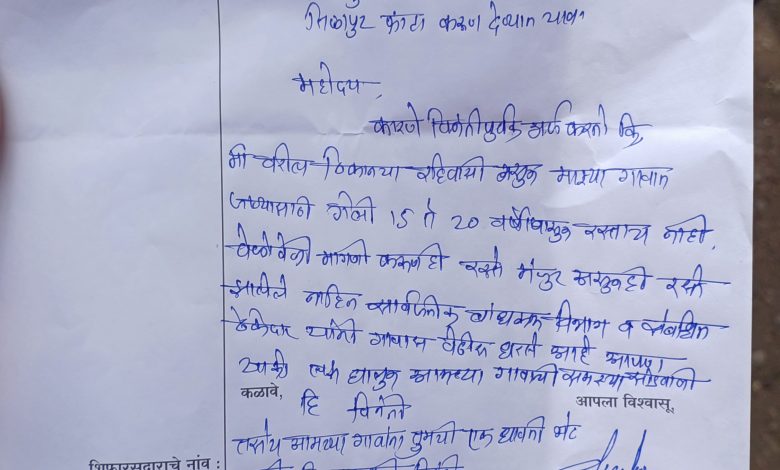 मिळापुर फाटा करुण देण्यात यावा
महोदय,
कारणे विनंतीपुर्वक अर्ज करतो कि,
मी वरील ठिकानचा रहिवासी असुन माझ्या गावात
जाण्यासाठी गेली 15 ते 20 वर्षांपासुन रस्ताच नाही.
वेळोवेळी मागणी करुणही रस्ते मंजुर असुनही रस्ते
झालेले नाहित सार्वजनीक बांधकाम विभाग व संबंधित
ठेकेदार यांनी गावास वेठीस धरले आहे आपण
लक्ष घालुन आमच्या गावाची समस्या सोडवावी
कळावे,
आपला विश्वासू,
हि विनंती
तसेच आमच्या गावाला तुमची एक धावती भेट
शिफारसदाराचे नांव :